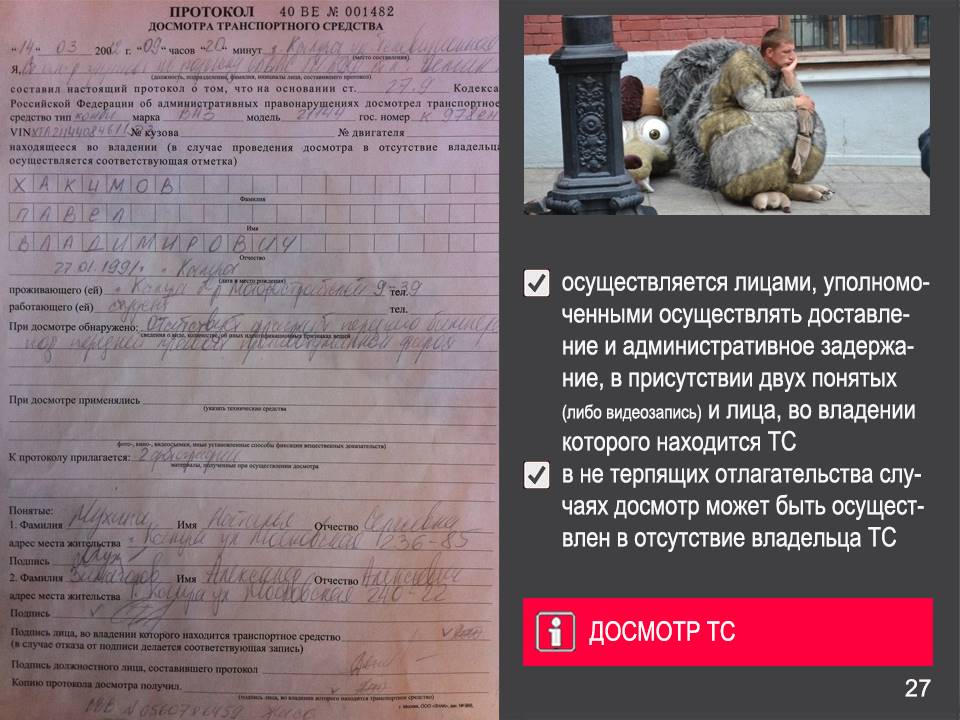 ПРОТОКОЛ 40 ВЕ № 001482
ДОСМОТРА ТРАНСПОРТНОГО СРЕДСТВА
"14" 03 200 г. "09" часов "20" минут г. Калуга ул.
(место составления)
Я,
(должность, подразделение, фамилия, инициалы лица, составившего протокол)
составил настоящий протокол о том, что на основании ст. 27.9 Кодекса
Российской Федерации об административных правонарушениях досмотрел транспортное
средство тип комби марка ВАЗ модель 21144 гос. номер К 978
VIN № кузова № двигателя
находящееся во владении (в случае проведения досмотра в отсутствие владельца
осуществляется соответствующая отметка)
ХАКИМОВ
Фамилия
ПАВЕЛ
Имя
ВЛАДИМИРОВИЧ
Отчество
27.01.1991г. г. Калуга
(дата и место рождения)
проживающего (ей) г. Калуга 9-39 тел.
работающего (ей) студент тел.
При досмотре обнаружено: Отсутствует фрагмент переднего бампера
сведения о виде, количестве, об иных идентификационных признаках вещей
под передней правой противотуманной фарой
При досмотре применялись
(указать технические средства
фото-, кино-, видеосъемки, иные установленные способы фиксации вещественных доказательств)
К протоколу прилагается: 2 фотографии
материалы, полученные при осуществлении досмотра
Понятые:
1. Фамилия Мухина Имя Наталья Отчество Сергеевна
адрес места жительства г. Калуга ул Московская 236-85
Подпись
2. Фамилия Имя Александр Отчество Алексеевич
адрес места жительства г. Калуга ул Московская 240-22
Подпись
Подпись лица, во владении которого находится транспортное средство
(в случае отказа от подписи делается соответствующая запись)
Подпись должностного лица, составившего протокол
Копию протокола досмотра получил.
(подпись лица, во владении которого находится транспортное средство)
осуществляется лицами, уполномо-
ченными осуществлять доставле-
ние и административное задержа-
ние, в присутствии двух понятых
(либо видеозапись) и лица, во владении
которого находится ТС
в не терпящих отлагательства слу-
чаях досмотр может быть осущест-
влен в отсутствие владельца ТС
ДОСМОТР ТС
27